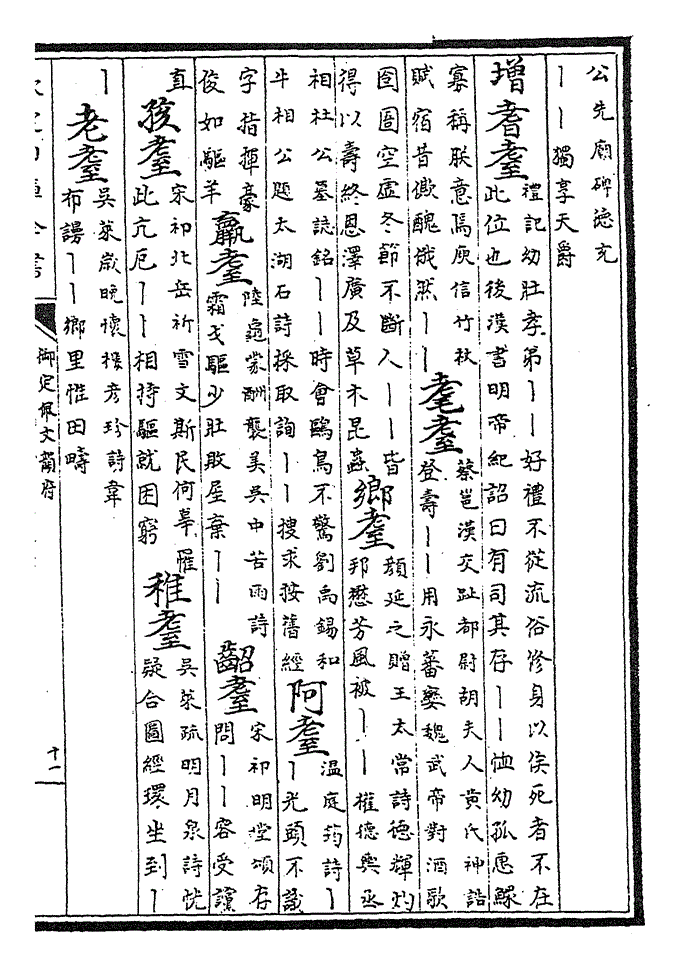 公先廟碑德充
丨丨獨享天爵
增耆耋
禮記幼壯孝弟丨丨好禮不從流俗修身以俟死者不在
此位也後漢書明帝紀詔曰有司其存丨丨恤幼孤惠鰥
寡稱朕意焉庾信竹杖
賦宿昔傲醜俄然丨丨
耄耋
蔡邕漢交趾都尉胡夫人黄氏神誥
登壽丨丨用永蕃孌魏武帝對酒歌
囹圄空虛冬節不斷人丨丨皆
得以壽終恩澤廣及草木昆蟲
鄉耋
顔延之贈王太常詩德輝灼
邦懋芳風被丨丨權德輿丞
相杜公墓誌銘丨丨時會鷗鳥不驚劉禹錫和
牛相公題太湖石詩採取詢丨丨搜求按舊經
阿耋
温庭筠詩丨
丨光頭不識
字指揮豪
俊如驅羊
羸耋
陸龜蒙酬襲美吳中苦雨詩
霜戈驅少壯敗屋棄丨丨
齠耋
宋祁明堂頌存
問丨丨容受讜
直
孩耋
宋祁北岳祈雪文斯民何辜罹
此亢厄丨丨相持驅就困窮
稚耋
吳萊疏明月泉詩恍
疑合圖經環坐到丨
丨
老耋
吳萊歲晚懷樓彦珍詩韋
布謾丨丨鄉里惟田疇
御定佩文韻府
十一